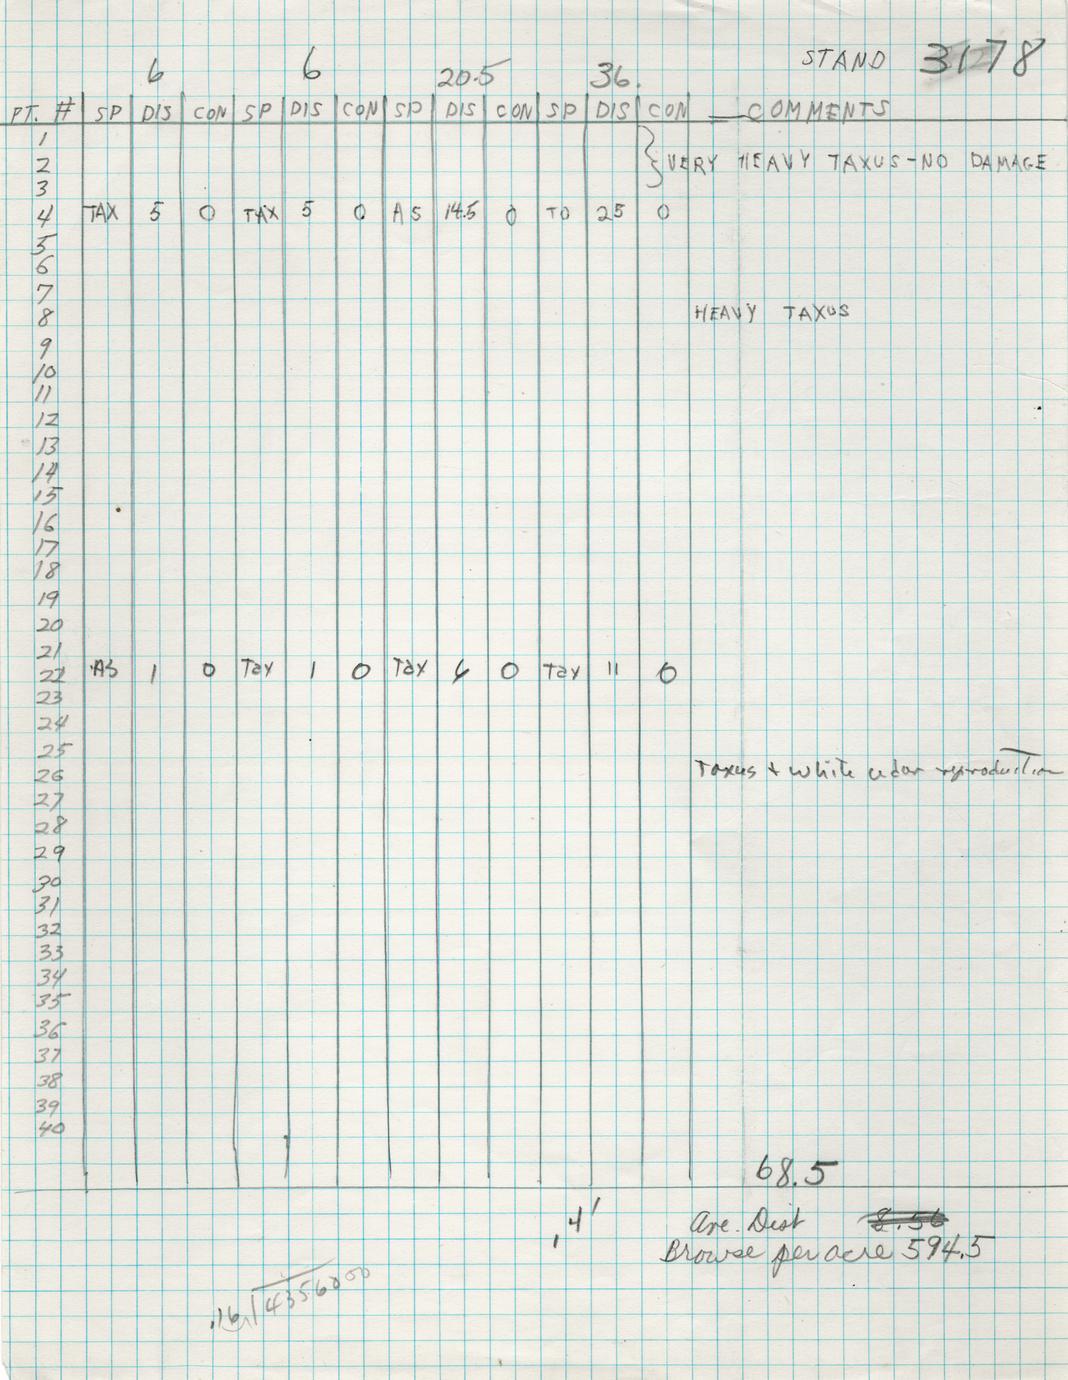 STAND 3178
6 6 20.5 36.
PT. # SP DIS CON SP DIS CON SP DIS CON SP DIS CON COMMENTS
1
2 VERY HEAVY TAXUS-NO DAMAGE
3
4 TAX 5 0 TAX 5 0 AS 14.5 0 TO 25 0
5
6
7
8 HEAVY TAXUS
9
10
11
12
13
14
15
16
17
18
19
20
21
22 AS 1 0 Tax 1 0 Tax 6 0 Tax 11 0
23
24
25
26 Taxus + white cedar reproduction
27
28
29
30
31
32
33
34
35
36
37
38
39
40
68.5
.4' Ave. Dist 8.56
Browse per acre 594.5
.16 4356000